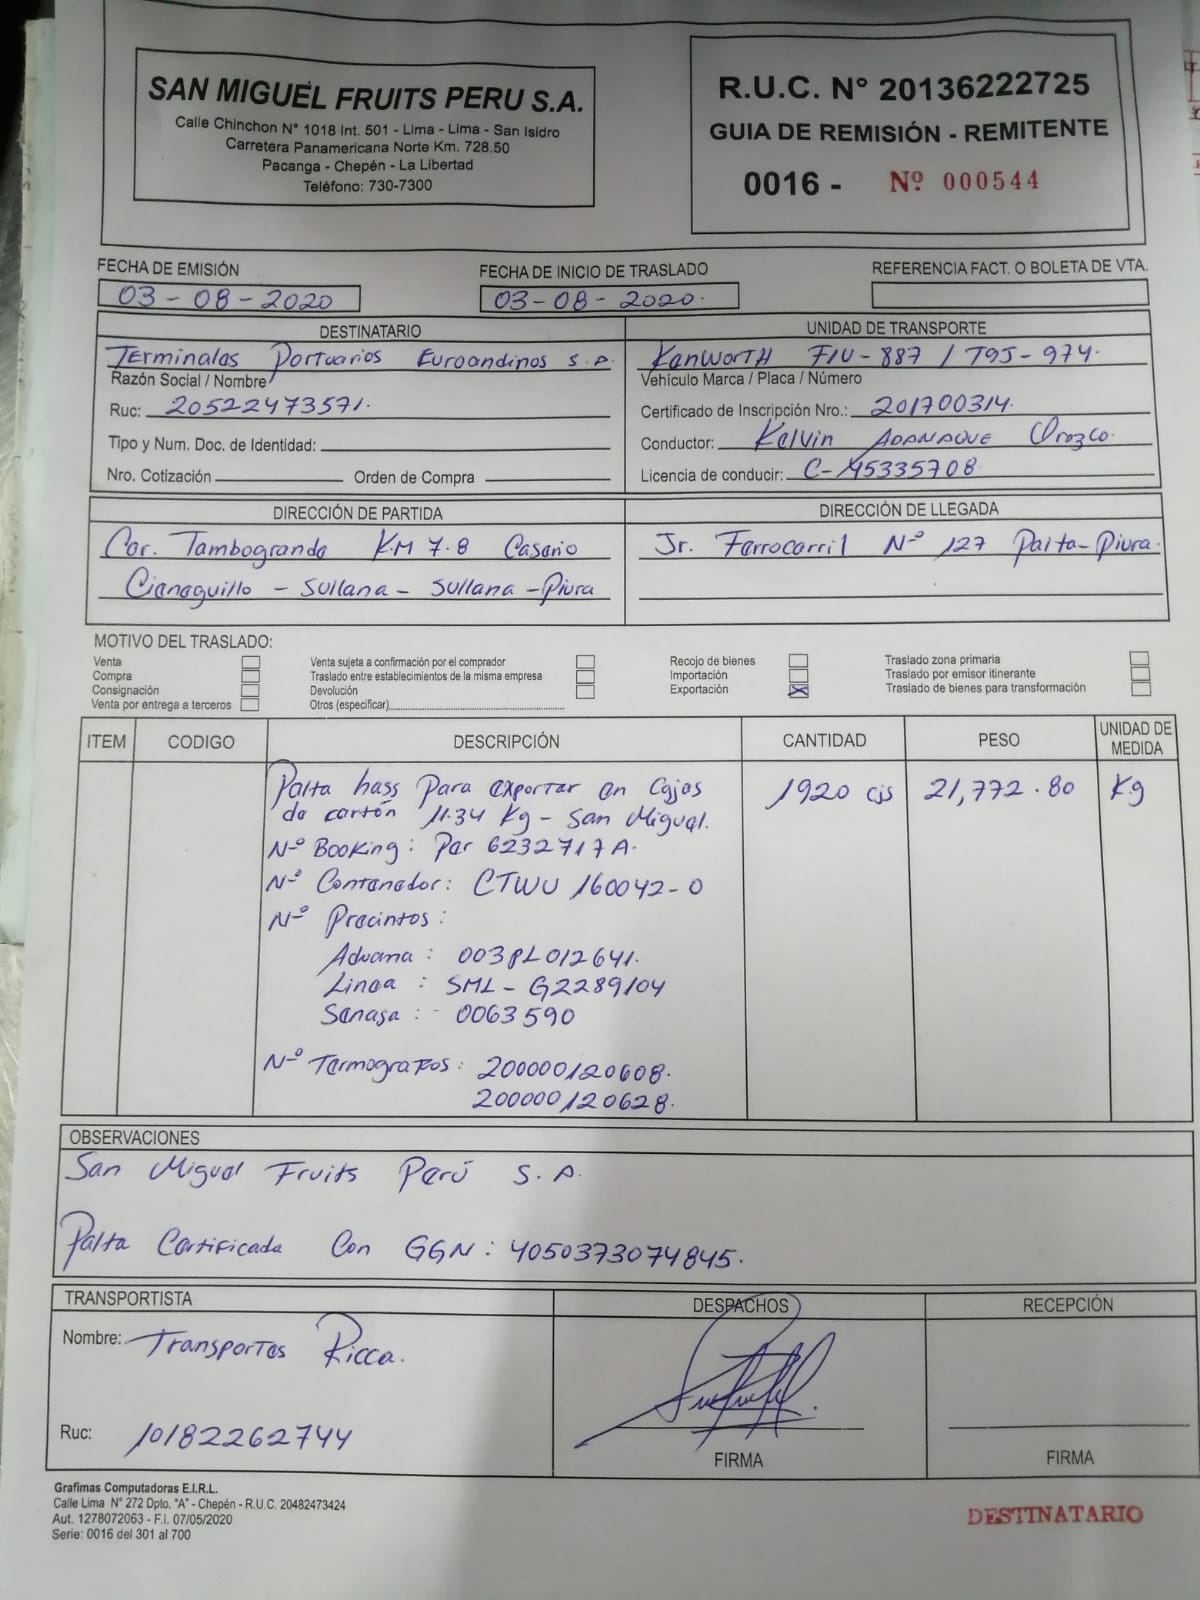 SAN MIGUEL FRUITS PERU S.A.
Calle Chinchon N° 1018 Int. 501 - Lima - Lima - San Isidro
Carretera Panamericana Norte Km. 728.50
Pacanga - Chepén - La Libertad
Teléfono: 730-7300
R.U.C. N° 20136222725
GUIA DE REMISIÓN - REMITENTE
0016 - Nº 000544
FECHA DE EMISIÓN
03-08-2020
FECHA DE INICIO DE TRASLADO
03-08-2020.
REFERENCIA FACT. O BOLETA DE VTA.
DESTINATARIO
Terminales Portuarios Euroandinos S.A.
Razón Social / Nombre
Ruc: 20522473571.
Tipo y Num. Doc. de Identidad:
Nro. Cotización Orden de Compra
UNIDAD DE TRANSPORTE
KenworTH FIU-887 / T9J-974.
Vehículo Marca / Placa / Número
Certificado de Inscripción Nro.: 201700314.
Conductor: Kelvin ADANAQUE Orozco.
Licencia de conducir: C-45335708
DIRECCIÓN DE PARTIDA
Car. Tambogrande KM 7.8 Caserio
Cieneguillo - Sullana - Sullana - Piura
DIRECCIÓN DE LLEGADA
Jr. Ferrocarril Nº 127 Paita-Piura.
MOTIVO DEL TRASLADO:
Venta
Compra
Consignación
Venta por entrega a terceros
Venta sujeta a confirmación por el comprador
Traslado entre establecimientos de la misma empresa
Devolución
Otros (especificar)
Recojo de bienes
Importación
Exportación X
Traslado zona primaria
Traslado por emisor itinerante
Traslado de bienes para transformación
ITEM CODIGO DESCRIPCIÓN CANTIDAD PESO UNIDAD DE MEDIDA
Palta hass Para exportar en Cajas 1920 cjs 21,772.80 Kg
de cartón 11.34 Kg - San Miguel.
Nº Booking: Par 6232717A.
Nº Contenedor: CTWU 160042-0
Nº Precintos:
Aduana: 003PL012641.
Linea: SML-G2289104
Senasa: 0063590
Nº Termografos: 200000120608.
200000120628.
OBSERVACIONES
San Miguel Fruits Perú S.A.
Palta Certificada Con GGN: 4050373074845.
TRANSPORTISTA
Nombre: Transportes Ricca.
Ruc: 10182262744
DESPACHOS
FIRMA
RECEPCIÓN
FIRMA
Grafimas Computadoras E.I.R.L.
Calle Lima N° 272 Dpto. "A" - Chepén - R.U.C. 20482473424
Aut. 1278072063 - F.I. 07/05/2020
Serie: 0016 del 301 al 700
DESTINATARIO